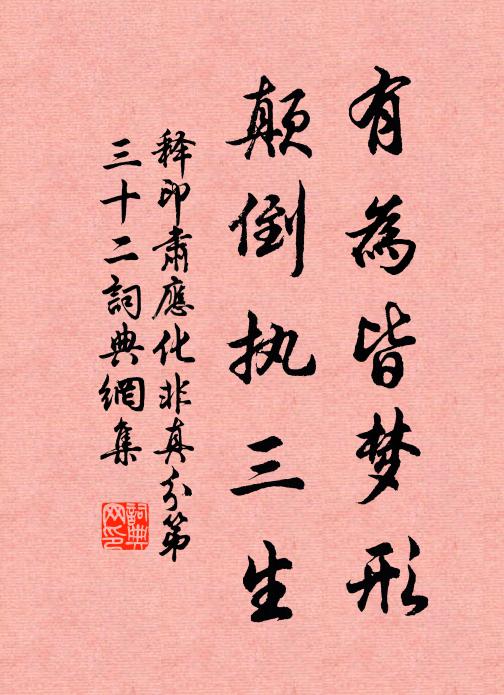 有為皆梦形
颠倒执三生
释印肃應化非真分第
三十二詞典網集
詞典
网印